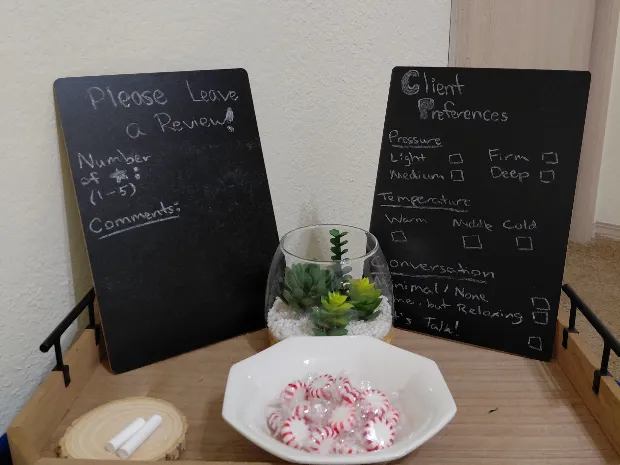 Please Leave
a Review!
Number
of ★:
(1-5)
Comments:
Client
Preferences
Pressure
Light Firm
Medium Deep
Temperature
Warm Middle Cold
Conversation
/ None
but Relaxing
Talk!